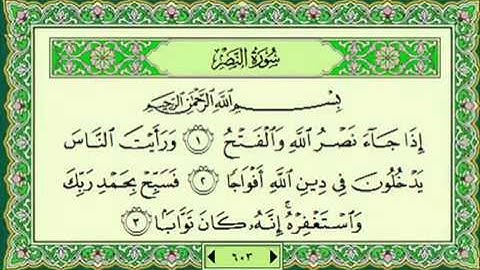 سُورَةُ النَّصْرِ
بِسْمِ اللَّهِ الرَّحْمَٰنِ الرَّحِيمِ
إِذَا جَآءَ نَصْرُ اللَّهِ وَالْفَتْحُ ١ وَرَأَيْتَ النَّاسَ
يَدْخُلُونَ فِي دِينِ اللَّهِ أَفْوَاجًا ٢ فَسَبِّحْ بِحَمْدِ رَبِّكَ
وَاسْتَغْفِرْهُ ۚ إِنَّهُۥ كَانَ تَوَّابًۢا ٣
٦٠٣